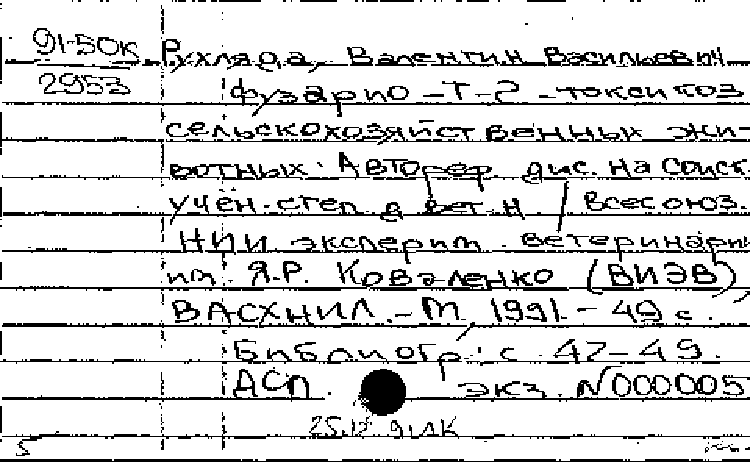 91-50К Рухляда, Валентин Васильевич
2953 Фузарио-Т-2-токсикоз
сельскохозяйственных жи-
вотных: Автореф. дис. на соиск.
учен. степ. д. вет. н / Всесоюз.
НИИ эксперим. ветеринарии
им. Я.Р. Коваленко (ВИЭВ),
ВАСХНИЛ. - М 1991. - 49 с.
Библиогр.: с. 47-49.
ДСП. экз. N 000005
25.12.91 ДК
5